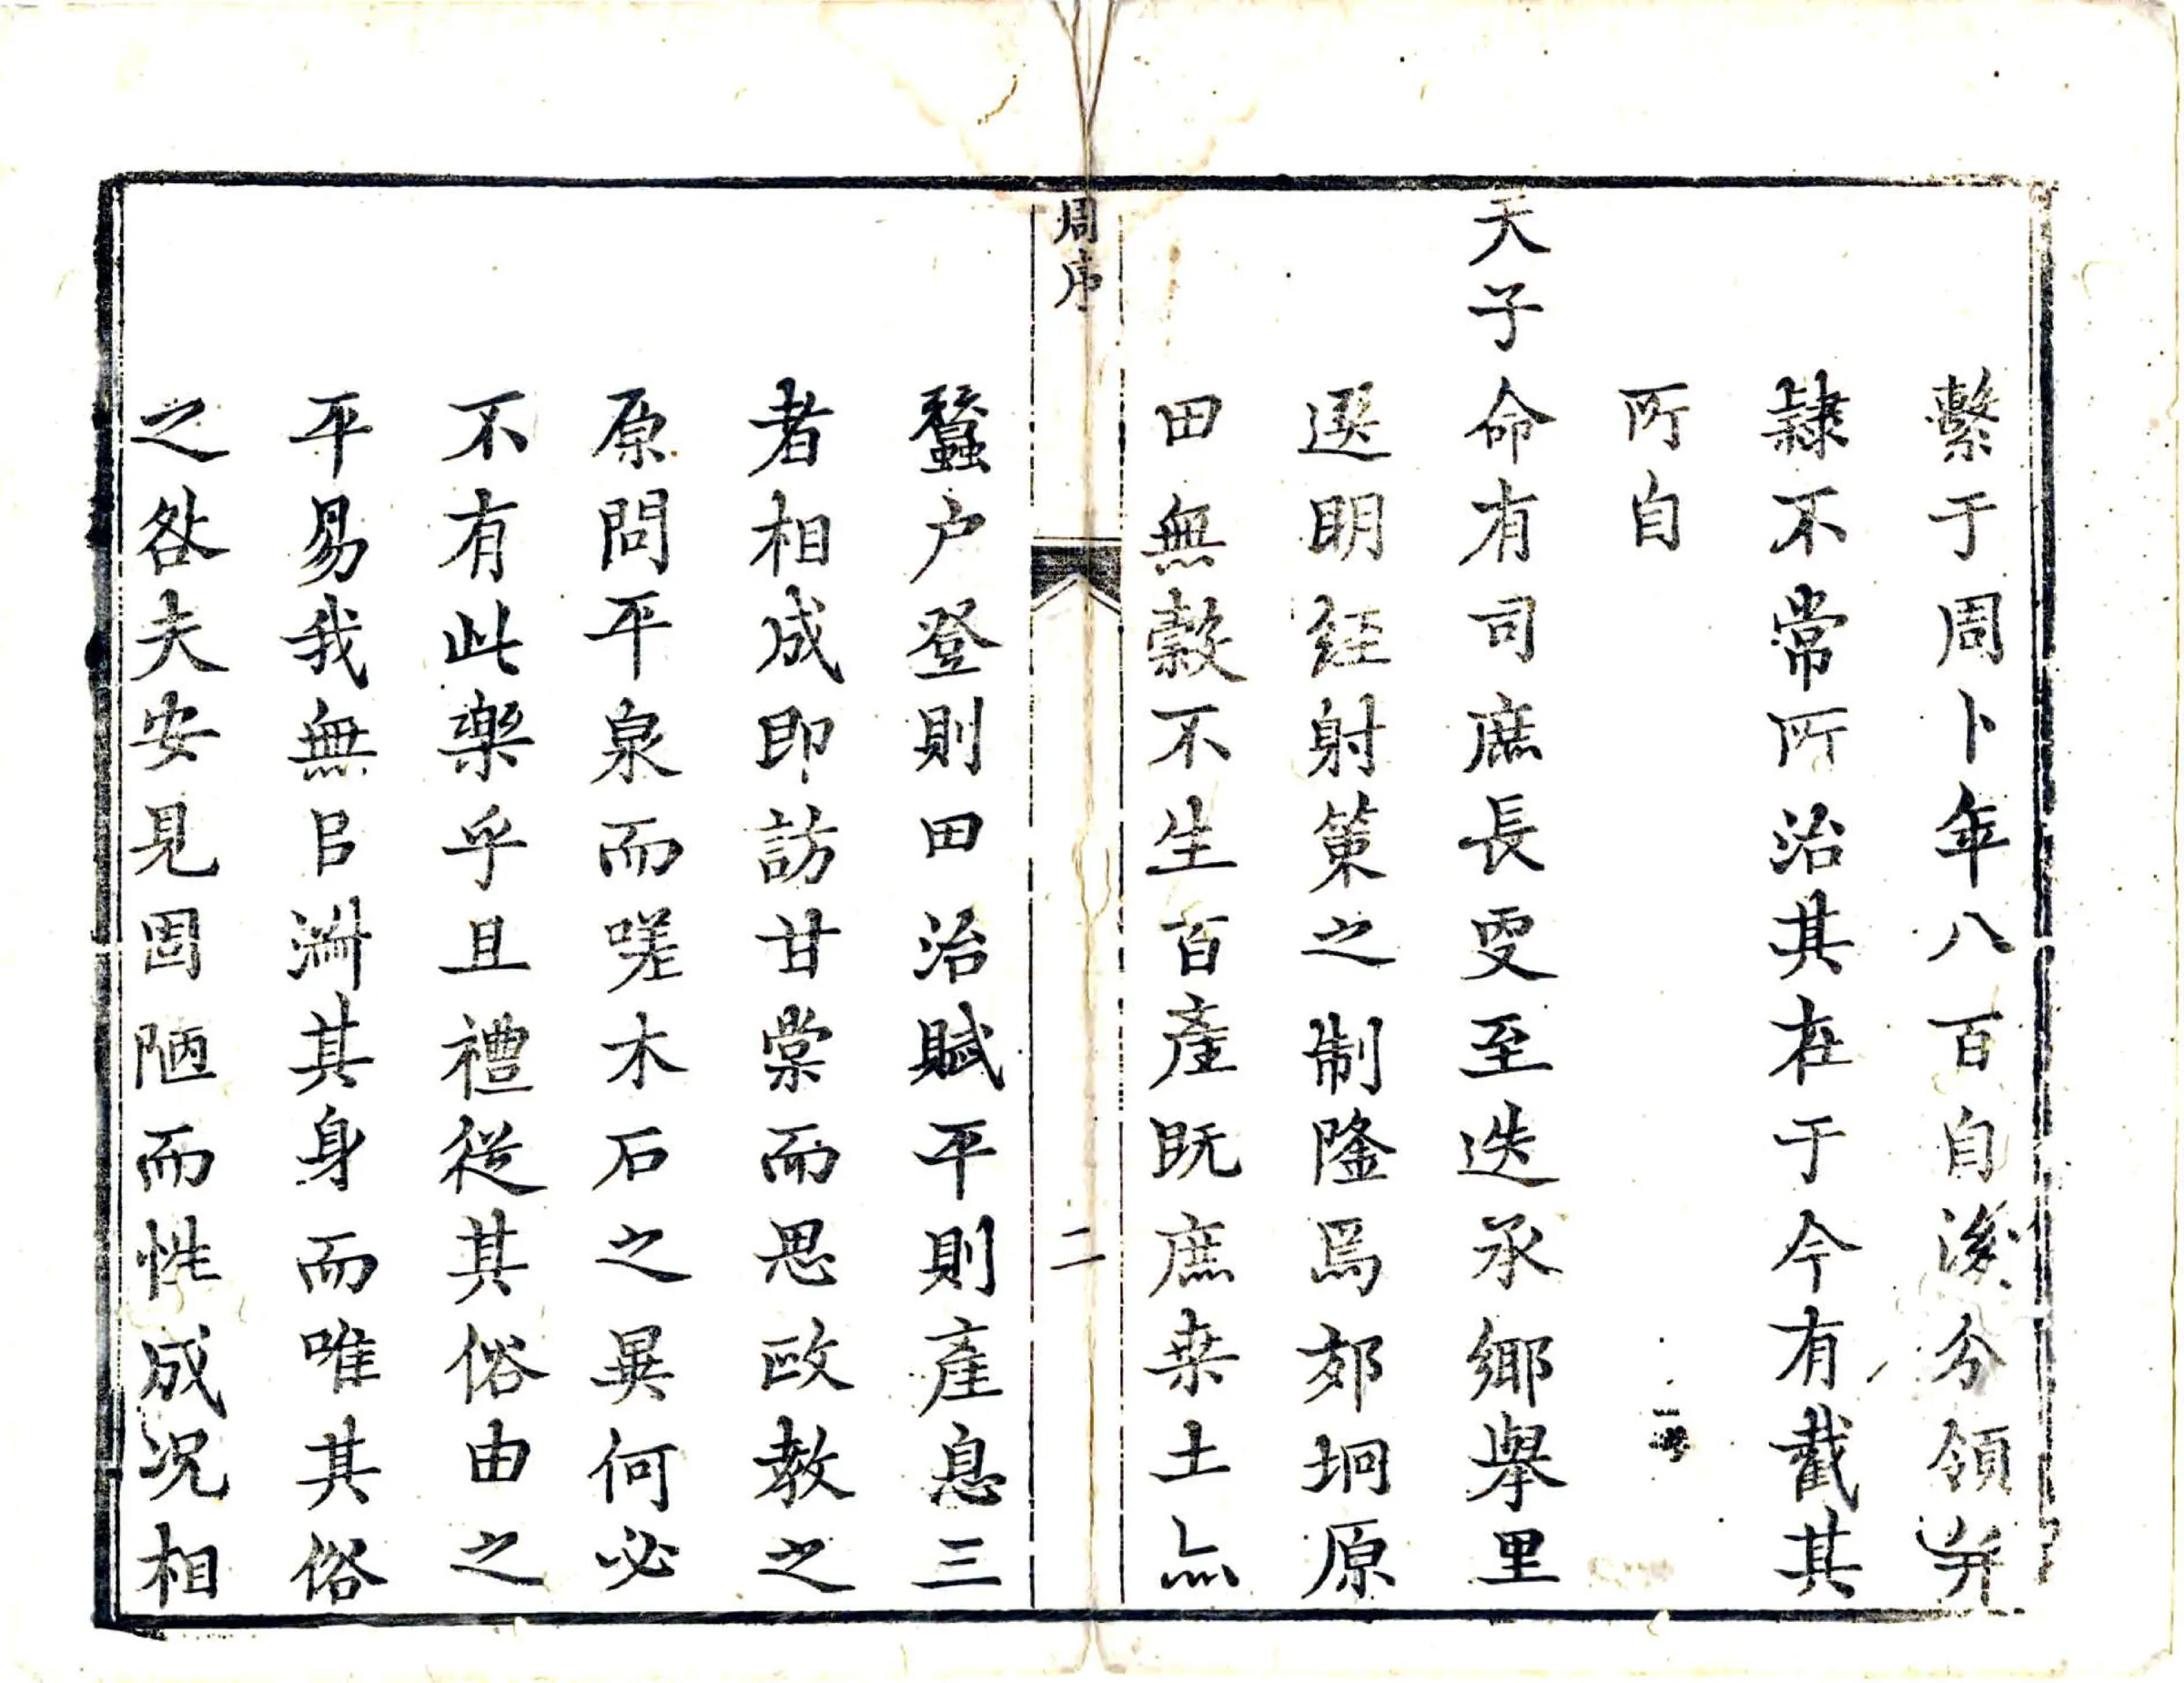 繫于周卜年八百自後分領并
隸不常所治其在于今有截其
所自
天子命有司庶長受至迭承鄉舉里
選明經射策之制隆焉郊坰原
田無穀不生百產既庶桒土亦
蠶户登則田治賦平則產息三
者相成即訪甘棠而思政教之
原問平泉而嗟木石之異何必
不有此樂乎且禮從其俗由之
平易我無㠯淛其身而唯其俗
之咎夫安見固陋而性成况相
周序
二